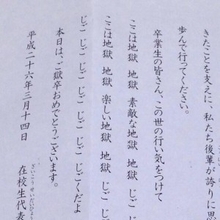 きたことを支えに、私たち後輩が誇りに思
歩んで行ってください。
卒業生の皆さん、この世の行い気をつけて
ここは地獄 地獄 素敵な地獄 地獄 じご
じごじご じごじご じごじご じごじご
ここは地獄 地獄 楽しい地獄 地獄 じご
じごじご じごじご じごくだよ
本日は、ご獄卒おめでとうございます。
平成二十六年三月十四日
在校生代表